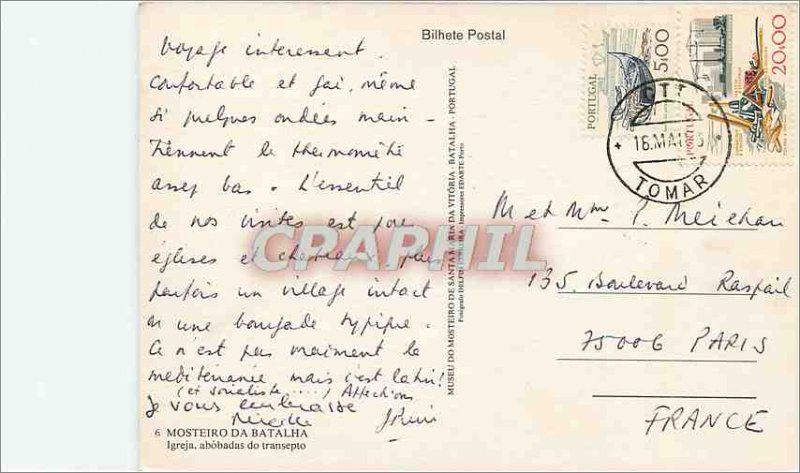 Bilhete Postal
Voyage intéressant.
Confortable et gai, même
si quelques ondées main-
tiennent le thermomètre
assez bas. L'essentiel
de nos visites est pour
églises et châteaux, puis
parfois un village intact
ou une bourgade typique.
Ce n'est pas vraiment la
méditerranée mais c'est latin!
(et socialiste ....) Affections
Je vous embrasse
6 MOSTEIRO DA BATALHA
Igreja, abóbadas do transepto
MUSEU DO MOSTEIRO DE SANTA MARIA DA VITÓRIA - BATALHA - PORTUGAL
CPAPHIL
PORTUGAL 5,00
PORTUGAL 20,00
CTT
16.MAI
TOMAR
M et Mme P. Meiehan
135. Boulevard Raspail
75006 PARIS
FRANCE